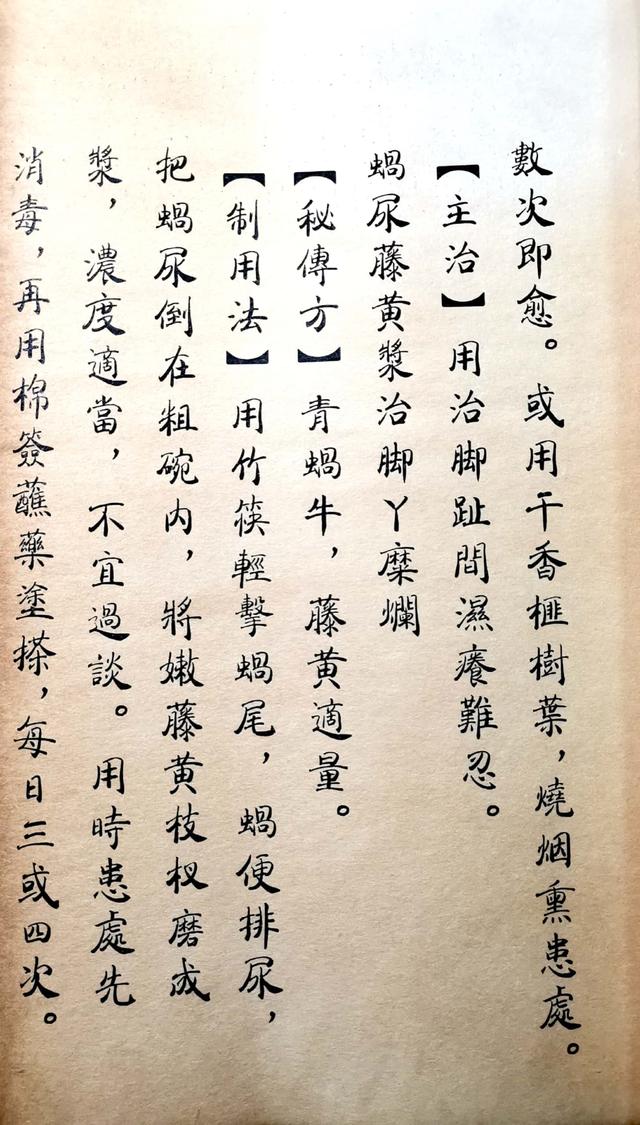 數次即愈。或用干香榧樹葉，燒烟熏患處。
【主治】用治脚趾間濕癢難忍。
蝸尿藤黄漿治脚丫糜爛
【秘傳方】青蝸牛，藤黄適量。
【制用法】用竹筷輕擊蝸尾，蝸便排尿，
把蝸尿倒在粗碗内，將嫩藤黄枝杈磨成
漿，濃度適當，不宜過談。用時患處先
消毒，再用棉簽蘸藥塗搽，每日三或四次。